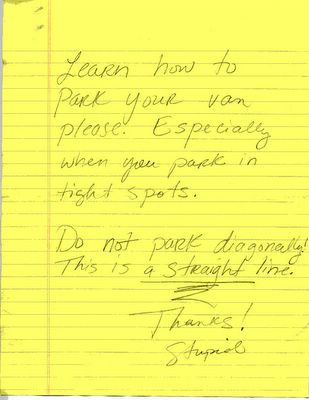 Learn how to
Park your van
please. Especially
when you park in
tight spots.
Do not park diagonally!
This is a straight line.
Thanks!
Stupid